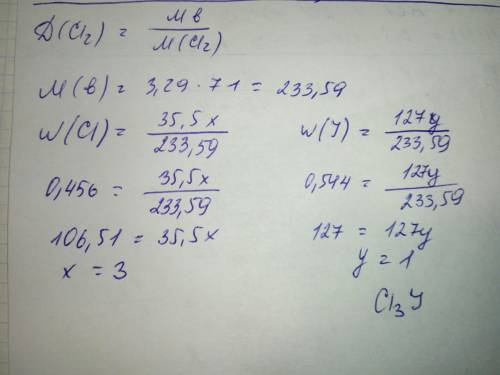 D(Cl₂) = Mв / M(Cl₂)
M(в) = 3,29 · 71 = 233,59
W(Cl) = 35,5x / 233,59
W(J) = 127y / 233,59
0,456 = 35,5x / 233,59
0,544 = 127y / 233,59
106,51 = 35,5x
127 = 127y
x = 3
y = 1
Cl₃J